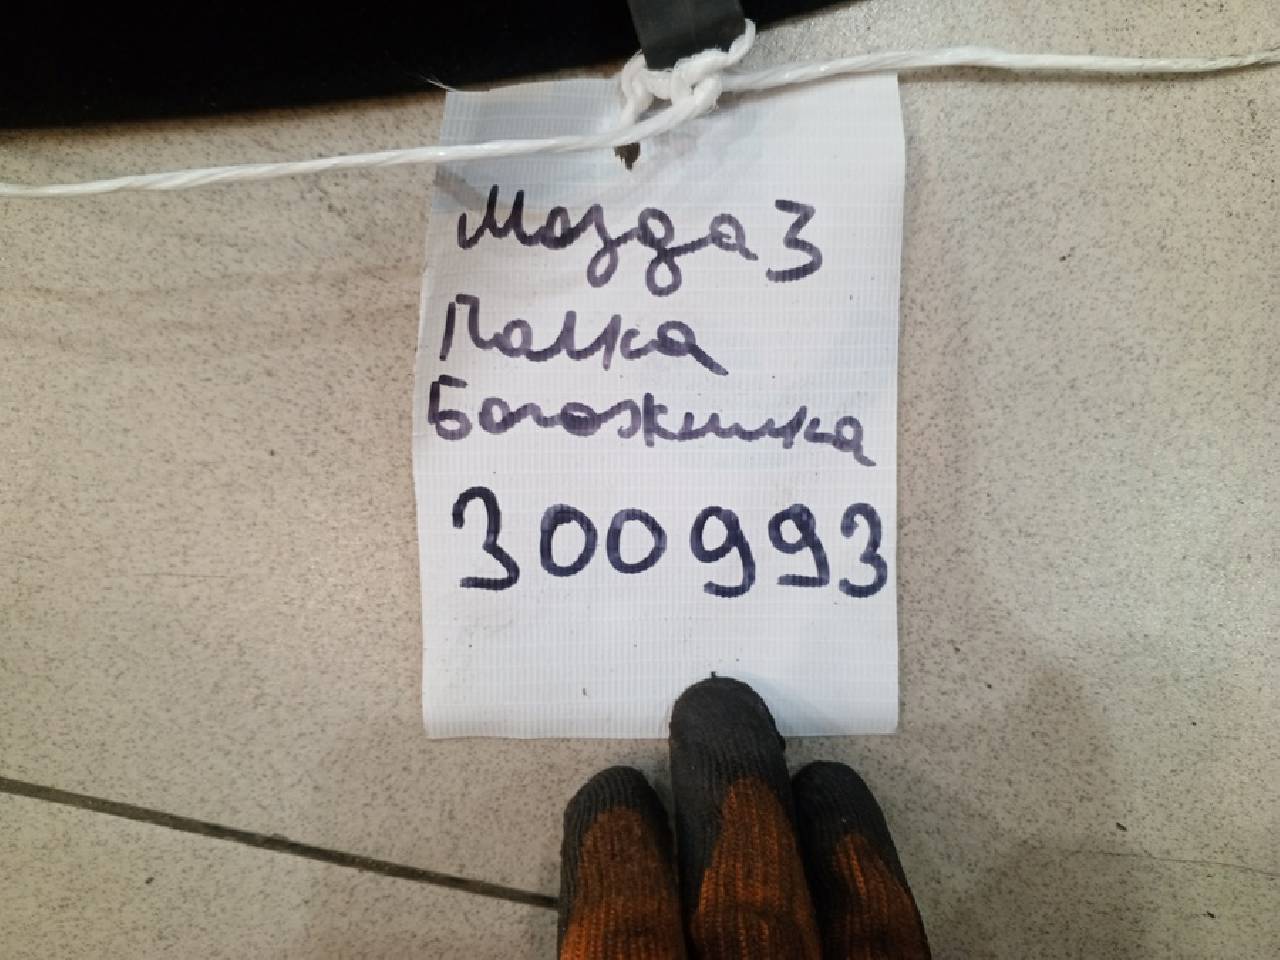 Мазда 3
Полка
Богожника
300993